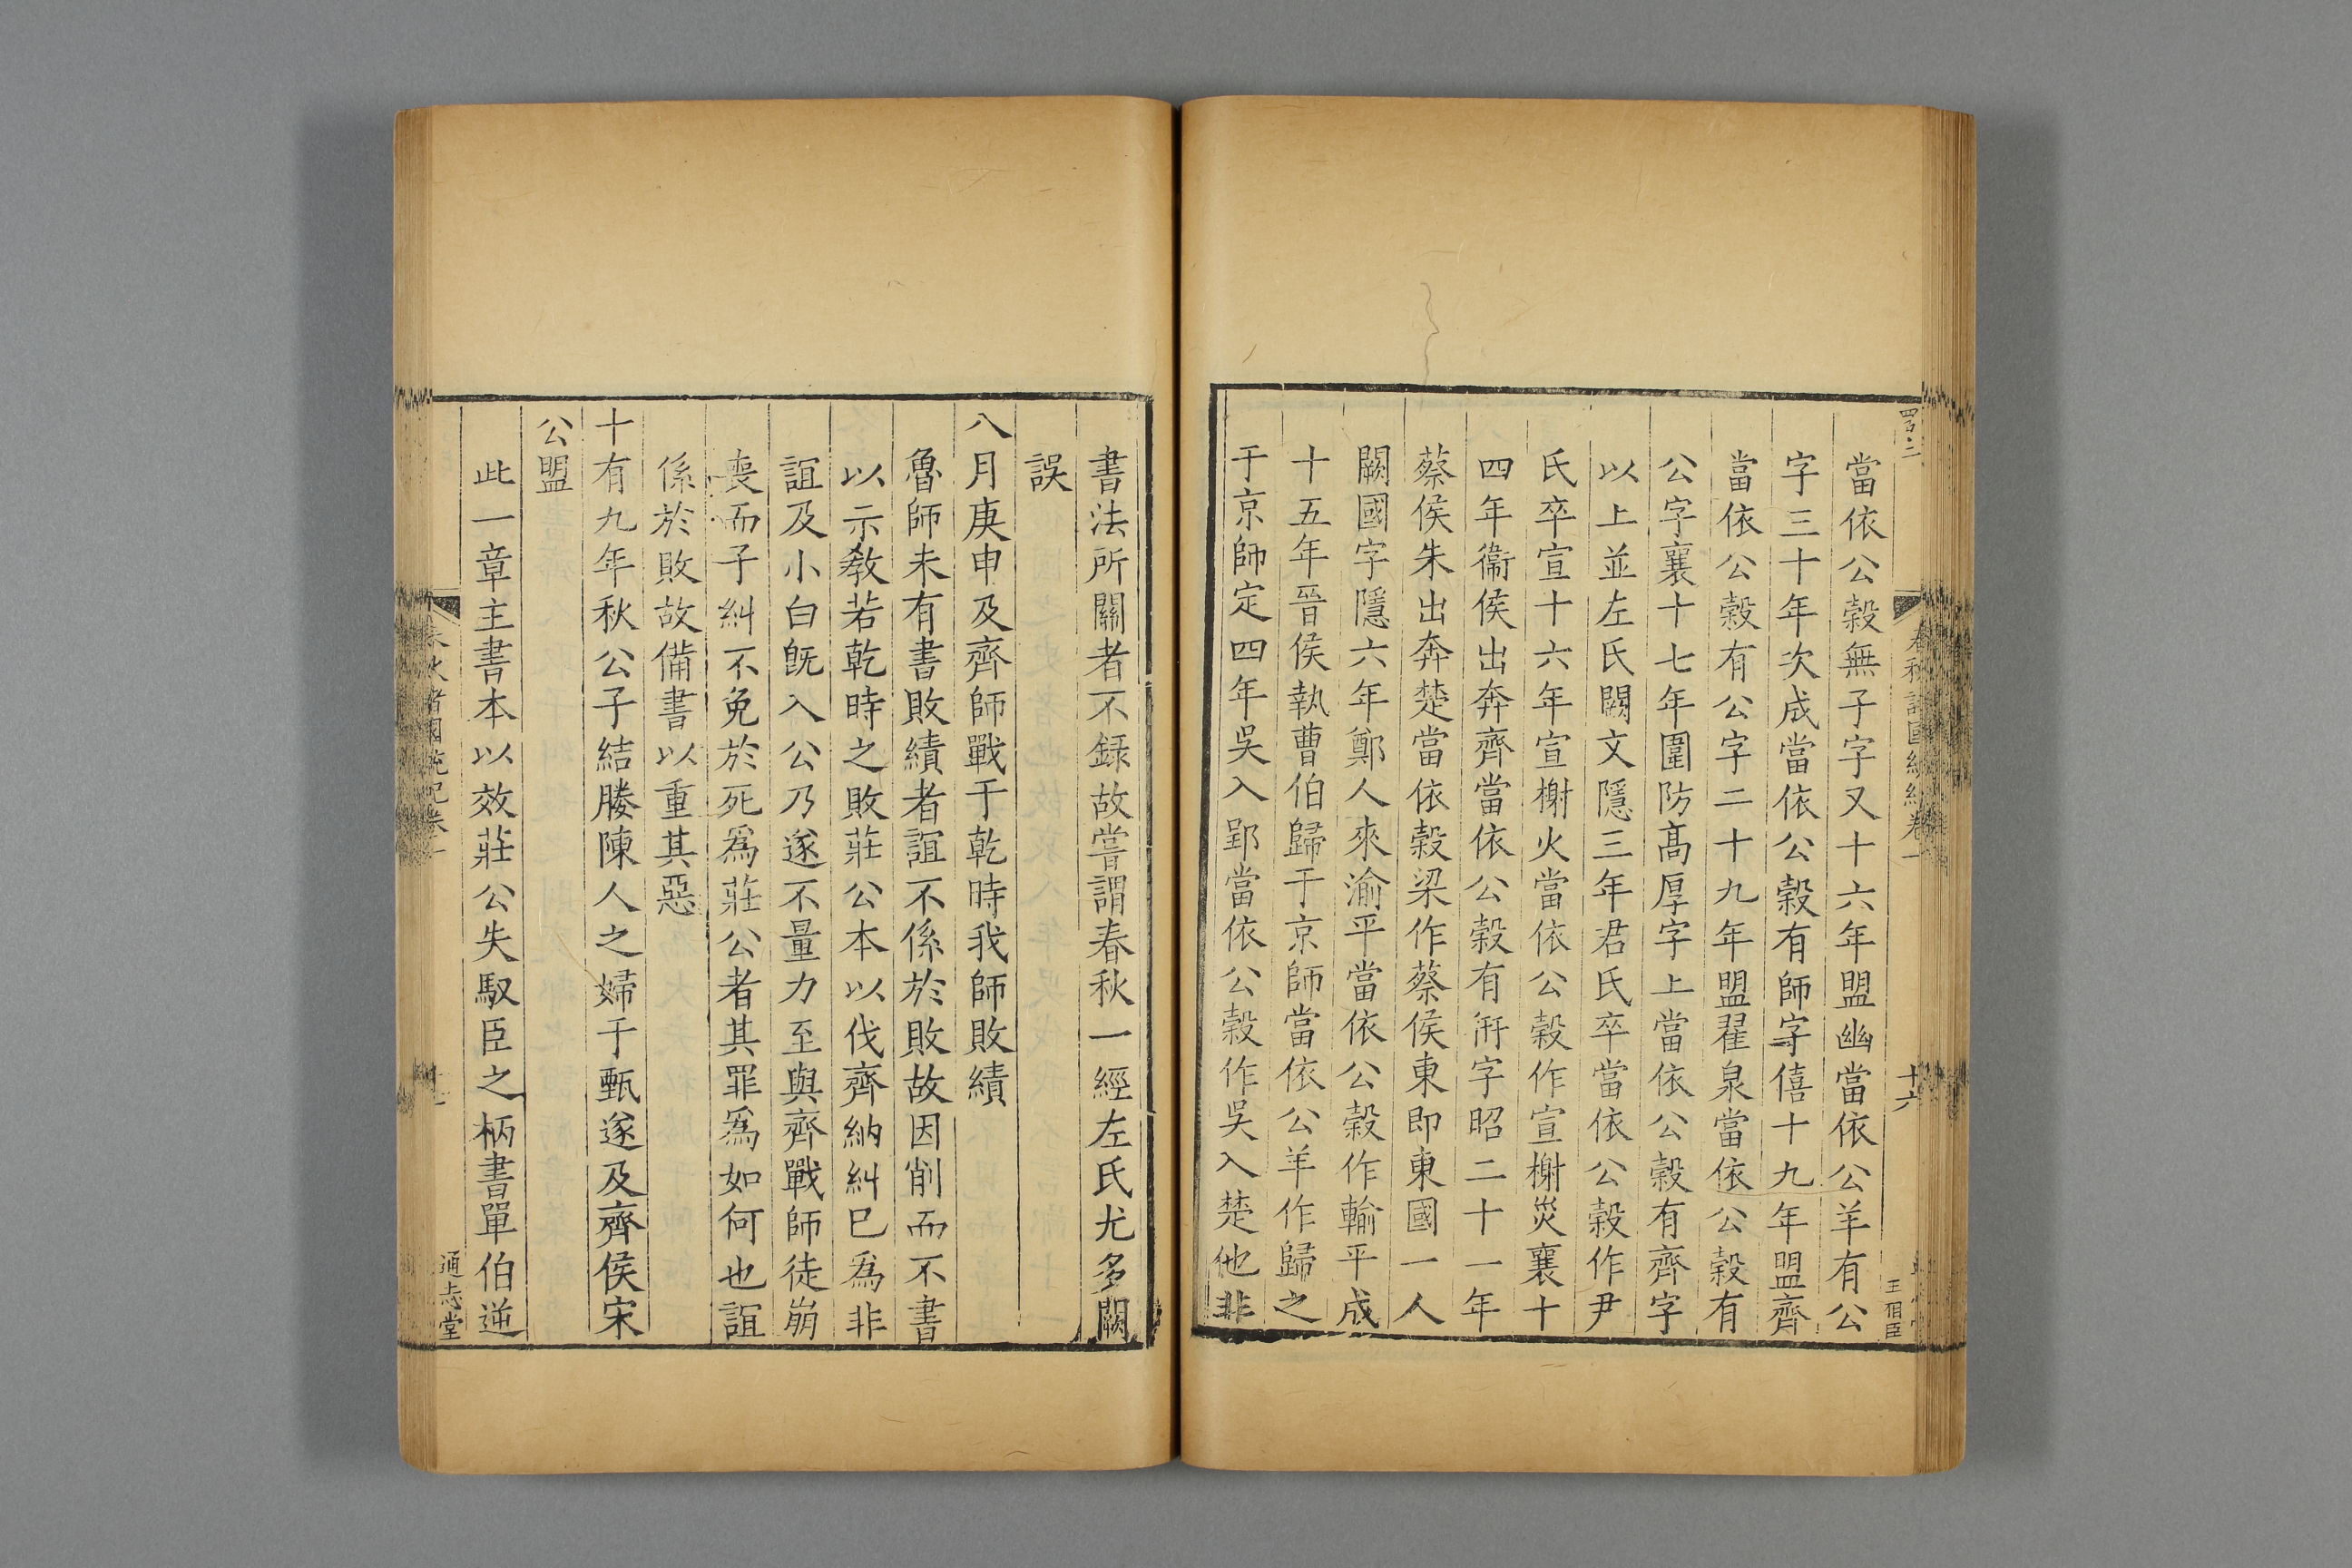 當依公穀無子字又十六年盟幽當依公羊有公
字三十年次成當依公穀有師字僖十九年盟齊
當依公穀有公字二十九年盟翟泉當依公穀有
公字襄十七年圍防髙厚字上當依公穀有齊字
以上並左氏闕文隱三年君氏卒當依公穀作尹
氏卒宣十六年宣榭火當依公穀作宣榭災襄十
四年衞侯出奔齊當依公穀有衎字昭二十一年
蔡侯朱出奔楚當依穀梁作蔡侯東即東國一人
闕國字隱六年鄭人來渝平當依公穀作輸平成
十五年晉侯執曹伯歸于京師當依公羊作歸之
于京師定四年吳入郢當依公穀作吳入楚他非
十六
王相臣
書法所關者不録故嘗謂春秋一經左氏尤多闕
誤
八月庚申及齊師戰于乾時我師敗績
魯師未有書敗績者誼不係於敗故因削而不書
以示敎若乾時之敗莊公本以伐齊納糾巳爲非
誼及小白旣入公乃遂不量力至與齊戰師徒崩
喪而子糾不免於死爲莊公者其罪爲如何也誼
係於敗故備書以重其惡
十有九年秋公子結媵陳人之婦于甄遂及齊侯宋
公盟
此一章主書本以效莊公失馭臣之柄書單伯逆
春秋諸國統紀卷一
通志堂